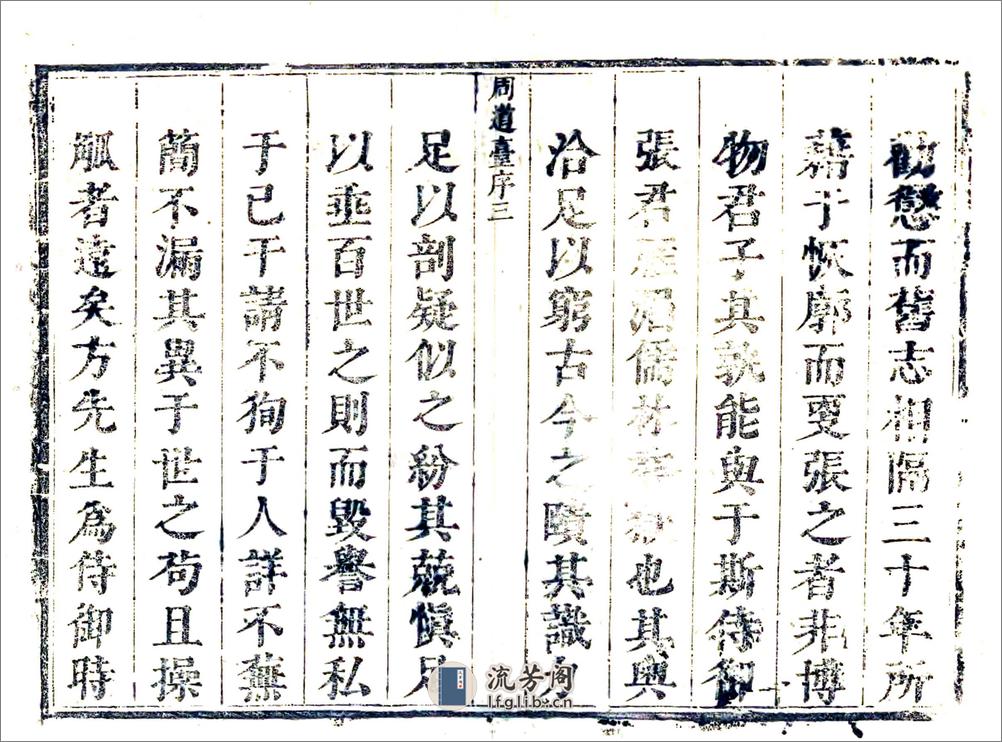 勸懲而舊志相隔三十年所
藉于恢廓而更張之者非博
物君子其孰能與于斯侍御
張君 儒林 也其典
洽足以窮古今之賾其識力
周道臺序三
足以剖疑似之紛其兢慎足
以垂百世之則而毀譽無私
于已干請不狥于人詳不蕪
簡不漏其異于世之苟且操
觚者遠矣方先生為侍御時
流芳阁
lfglib.cn